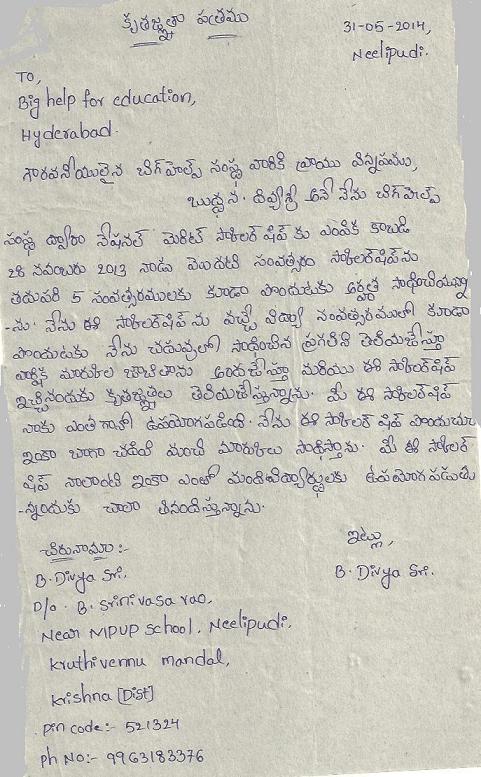 కృతజ్ఞతా పత్రము
31-05-2014,
Neelipudi.
To,
Big help for education,
Hyderabad.
గౌరవనీయులైన బిగ్‌హెల్ప్ సంస్థ వారికి వ్రాయు విన్నపము,
బుద్దన. దివ్యశ్రీ అనే నేను బిగ్‌హెల్ప్
సంస్థ ద్వారా నేషనల్ మెరిట్ స్కాలర్ షిప్ కు ఎంపిక కాబడి
28 నవంబరు 2013 నాడు మొదటి సంవత్సరం స్కాలర్‌షిప్‌ను
తదుపరి 5 సంవత్సరములకు కూడా పొందుటకు అర్హత సాధించియున్నా
-ను. నేను ఈ స్కాలర్‌షిప్ ను వచ్చే విద్యా సంవత్సరములో కూడా
పొందుటకు నేను చదువులో సాధించిన ప్రగతిని తెలియజేస్తూ
మార్కుల జాబితాను అందజేస్తూ మరియు ఈ స్కాలర్‌షిప్
ఇచ్చినందుకు కృతజ్ఞతలు తెలియజేస్తున్నాను. మీ ఈ స్కాలర్‌షిప్
నాకు ఎంతగానో ఉపయోగపడింది. నేను ఈ స్కాలర్ షిప్ పొందుచూ
ఇంకా బాగా చదివి మంచి మార్కులు సాధిస్తాను. మీ ఈ స్కాలర్
షిప్ నాలాంటి ఇంకా ఎంతో మంది విద్యార్థులకు ఉపయోగ పడుతు
-న్నందుకు చాలా
చిరునామా :-
ఇట్లు,
B. Divya Sri,
B. Divya Sri.
D/o. B. Srinivasa rao,
Near MPUP School, Neelipudi,
Kruthivennu mandal,
Krishna [Dist]
Pin code :- 521324
ph No:- 9963183376